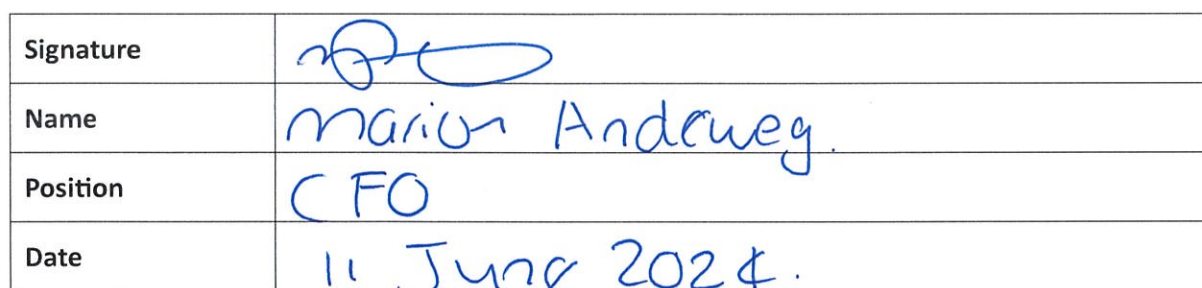 Signature
Name Marion Andeweg.
Position CFO
Date 11 June 2024.